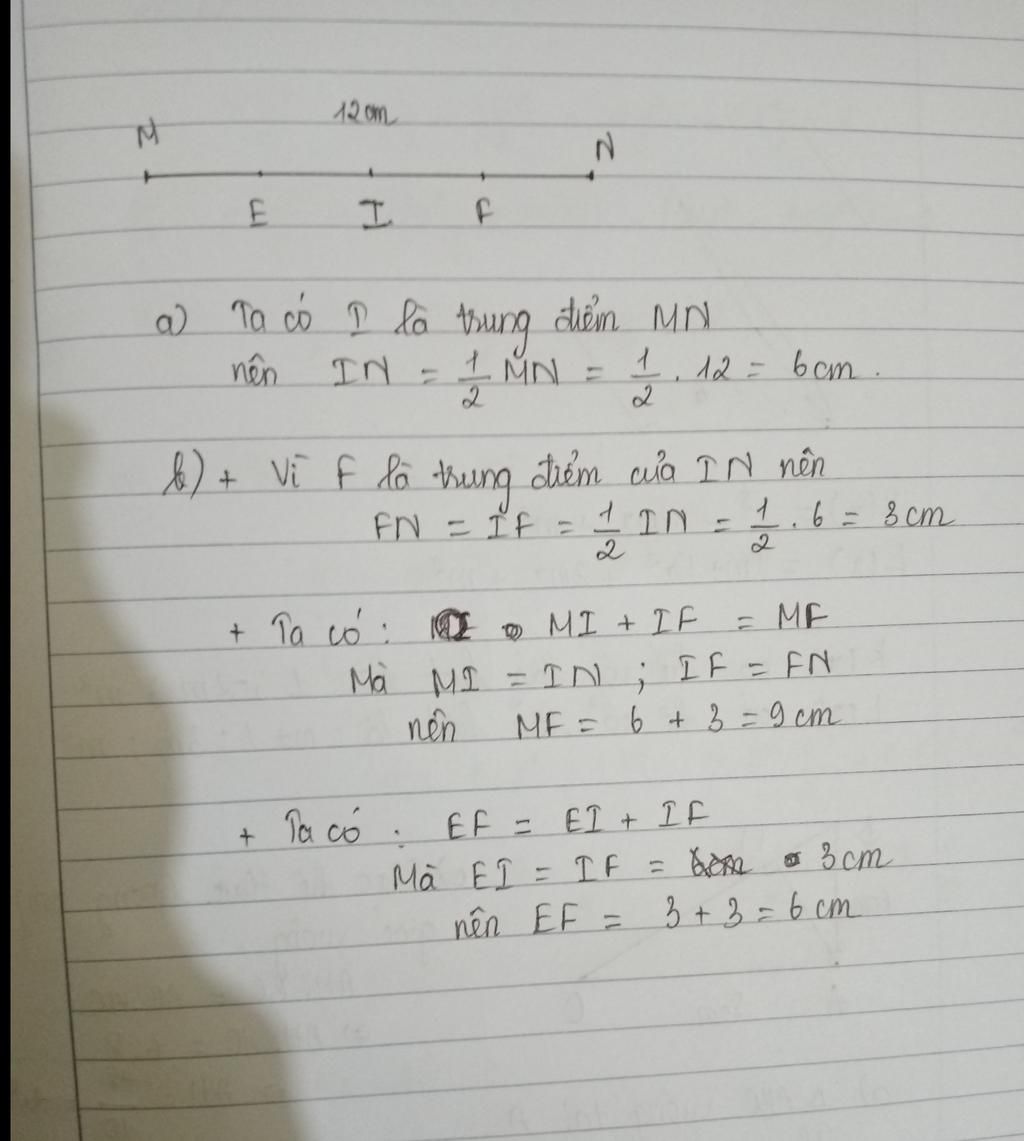 12cm
M N
E I F
a) Ta có I là trung điểm MN
nên IN = 1/2 MN = 1/2 . 12 = 6cm.
b) + Vì F là trung điểm của IN nên
FN = IF = 1/2 IN = 1/2 . 6 = 3cm
+ Ta có : MI + IF = MF
Mà MI = IN ; IF = FN
nên MF = 6 + 3 = 9cm
+ Ta có : EF = EI + IF
Mà EI = IF = 3cm
nên EF = 3 + 3 = 6cm